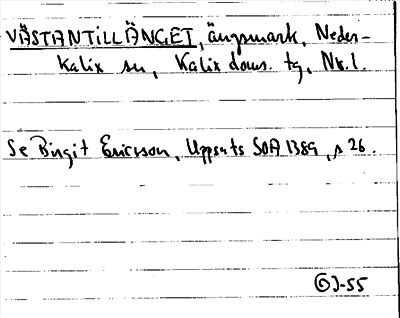 VÄSTANTILLÄNGET, ängsmark, Neder-
Kalix sn, Kalix doms. tg, Nb. l.
Se Birgit Ericsson, Uppsats SOA 1389, s 26.
GJ-55